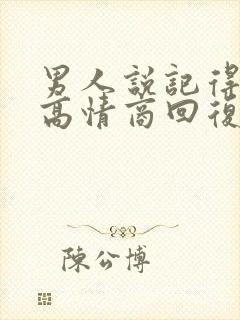 男人説記得
高情商回復
陳公博